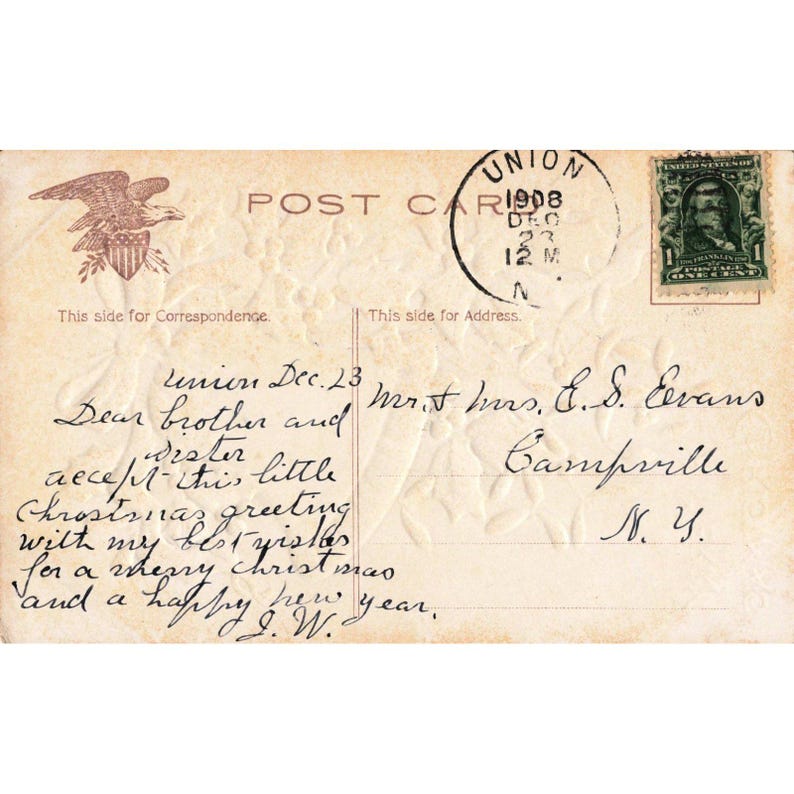 POST CARD
UNION
1908
DEC
23
12 M
N.
UNITED STATES OF
1 FRANKLIN 1
POSTAGE
ONE CENT
This side for Correspondence.
This side for Address.
Union Dec. 23
Dear brother and
sister
accept this little
Chrostmas greeting
with my best wishes
for a merry christmas
and a happy new year.
J. W.
Mr. & Mrs. E. S. Evans
Campville
N. Y.